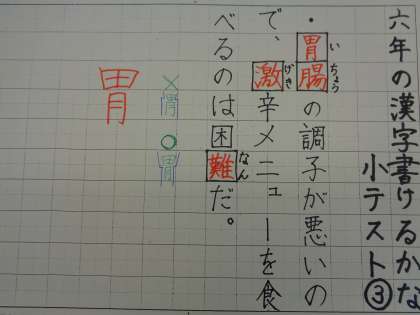 六年の漢字書けるかな
小テスト③
・胃腸の調子が悪いの
いちょう
で、激辛メニューを食
げき
べるのは困難だ。
なん
×胃
○胃
胃